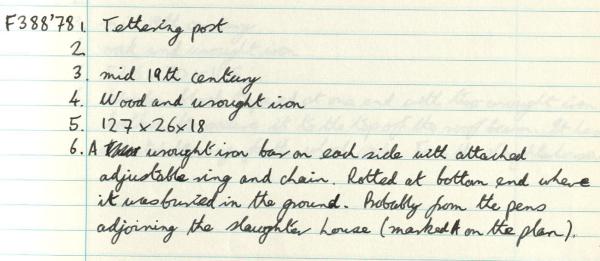 F388'78 1. Tethering post
2.
3. mid 19th century
4. Wood and wrought iron
5. 127 x 26 x 18
6. A wrought iron bar on each side with attached
adjustable ring and chain. Rotted at bottom end where
it was buried in the ground. Probably from the pens
adjoining the slaughter house (marked A on the plan).